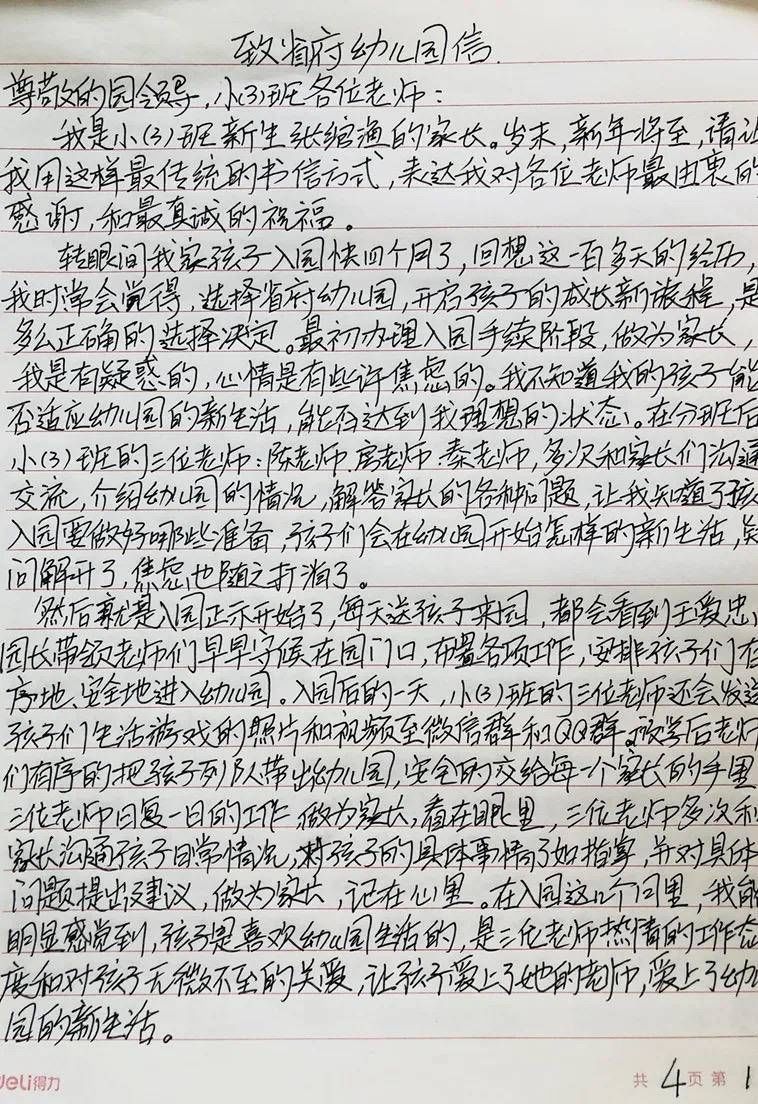 致省府幼儿园信
尊敬的园领导，小(3)班各位老师：
我是小(3)班新生张绾渔的家长。岁末，新年将至，请让
我用这样最传统的书信方式，表达我对各位老师最由衷的
感谢，和最真诚的祝福。
转眼间我家孩子入园快四个月了，回想这一百多天的经历，
我时常会觉得，选择省府幼儿园，开启孩子的成长新旅程，是
多么正确的选择决定。最初办理入园手续阶段，做为家长，
我是有疑惑的，心情是有些许焦虑的。我不知道我的孩子能
否适应幼儿园的新生活，能否达到我理想的状态。在分班后
小(3)班的三位老师：陈老师.房老师.秦老师，多次和家长们沟通
交流，介绍幼儿园的情况，解答家长的各种问题，让我知道了孩
入园要做好哪些准备，孩子们会在幼儿园开始怎样的新生活，疑
问解开了，焦虑也随之打消了。
然后就是入园正示开始了，每天送孩子来园，都会看到王爱忠
园长带领老师们早早守候在园门口，布置各项工作，安排孩子们有
序地、安全地进入幼儿园。入园后的一天，小(3)班的三位老师还会发送
孩子们生活游戏的照片和视频至微信群和QQ群。放学后老师
们有序的把孩子列队带出幼儿园，安全的交给每一个家长的手里
三位老师日复一日的工作 做为家长，看在眼里，三位老师多次和
家长沟通孩子日常情况，对孩子的具体事情了如指掌，并对具体
问题提出建议，做为家长，记在心里。在入园这几个月里，我能
明显感觉到，孩子是喜欢幼儿园生活的，是三位老师热情的工作态
度和对孩子无微不至的关爱，让孩子爱上了她的老师，爱上了幼
园的新生活。
deli得力
共 4 页 第 1